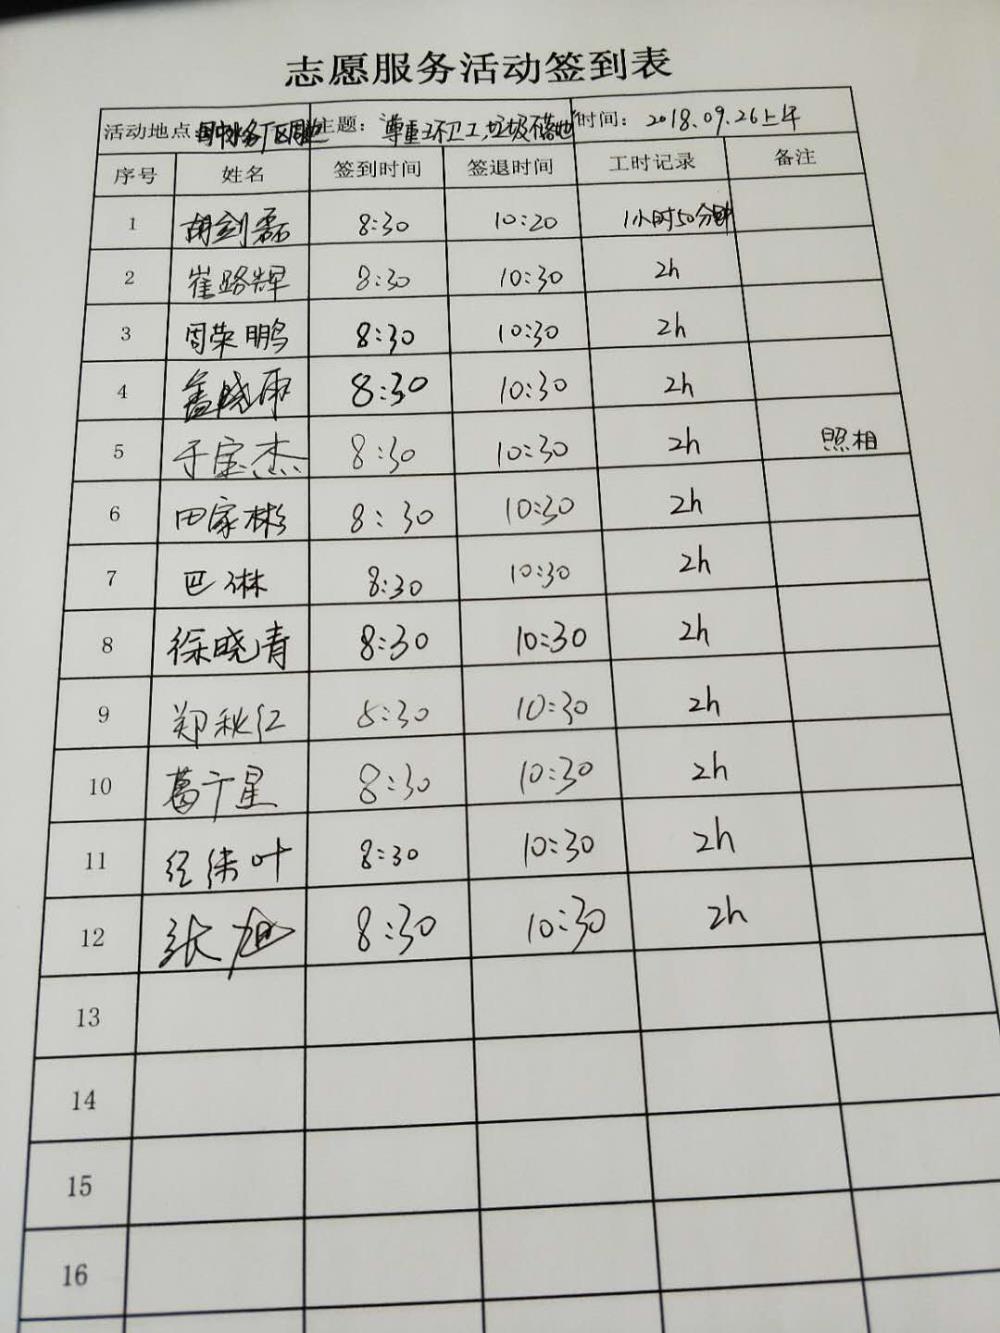 志愿服务活动签到表
活动地点 厂区周边 主题：尊重环卫工，垃圾不落地 时间：2018.09.26上午
序号 姓名 签到时间 签退时间 工时记录 备注
1 胡剑磊 8:30 10:20 1小时50分钟
2 崔路辉 8:30 10:30 2h
3 周荣鹏 8:30 10:30 2h
4 盖晓雨 8:30 10:30 2h
5 于宝杰 8:30 10:30 2h 照相
6 田家彬 8:30 10:30 2h
7 巴琳 8:30 10:30 2h
8 徐晓青 8:30 10:30 2h
9 郑秋红 8:30 10:30 2h
10 葛于星 8:30 10:30 2h
11 叶 8:30 10:30 2h
12 张旭 8:30 10:30 2h
13
14
15
16